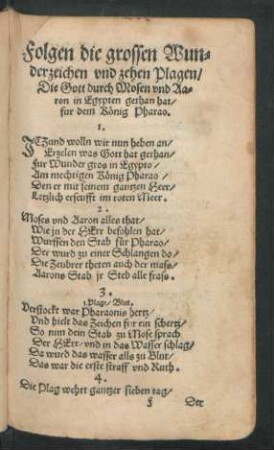 Folgen die grossen Wun-
derzeichen vnd zehen Plagen/
Die Gott durch Mosen vnd Aa-
ron in Egypten gethan hat/
fur dem König Pharao.
1.
JTzund wolln wir nun heben an/
Erzelen was Gott hat gethan/
Fur Wunder gros in Egypto/
Am mechtigen König Pharao/
Den er mit seinem gantzen Heer/
Letzlich erseufft im roten Meer.
2.
Moses vnd Aaron alles that/
Wie jn der HErr befohlen hat/
Wurffen den Stab für Pharao/
Der wurd zu einer Schlangen do/
Die Zeubrer theten auch der mass/
Aarons Stab jr Steb alle frass.
3.
1. Plage/ Blut.
Verstockt war Pharaonis hertz/
Vnd hielt das Zeichen fur ein schertz/
So nim dein Stab zu Mose sprach
Der HErr/ vnd in das Wasser schlag/
Da wurd das wasser alls zu Blut/
Das war die erste straff vnd Ruth.
4.
Die Plag wehrt gantzer sieben tag/
Der